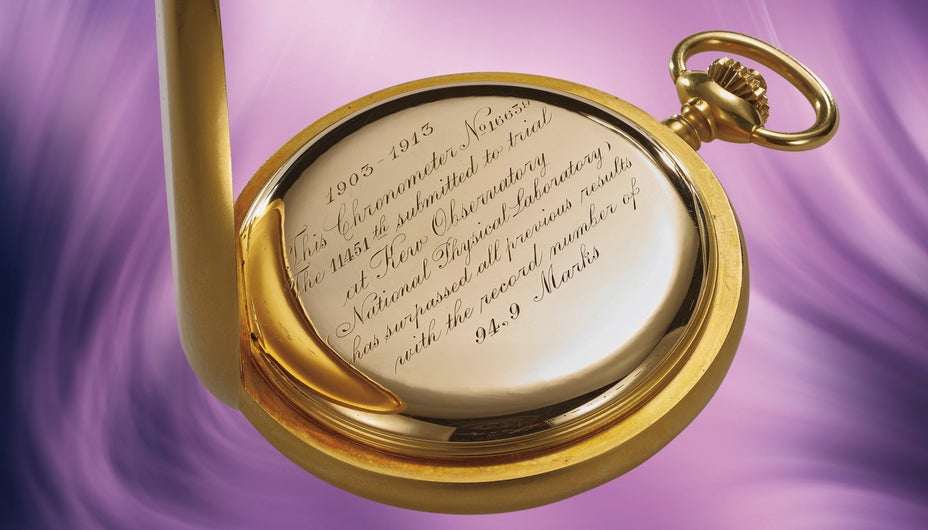 1903-1913
This Chronometer No 16639
The 11451th submitted to trial
at Kew Observatory
(National Physical Laboratory)
has surpassed all previous results
with the record number of
94,9 Marks